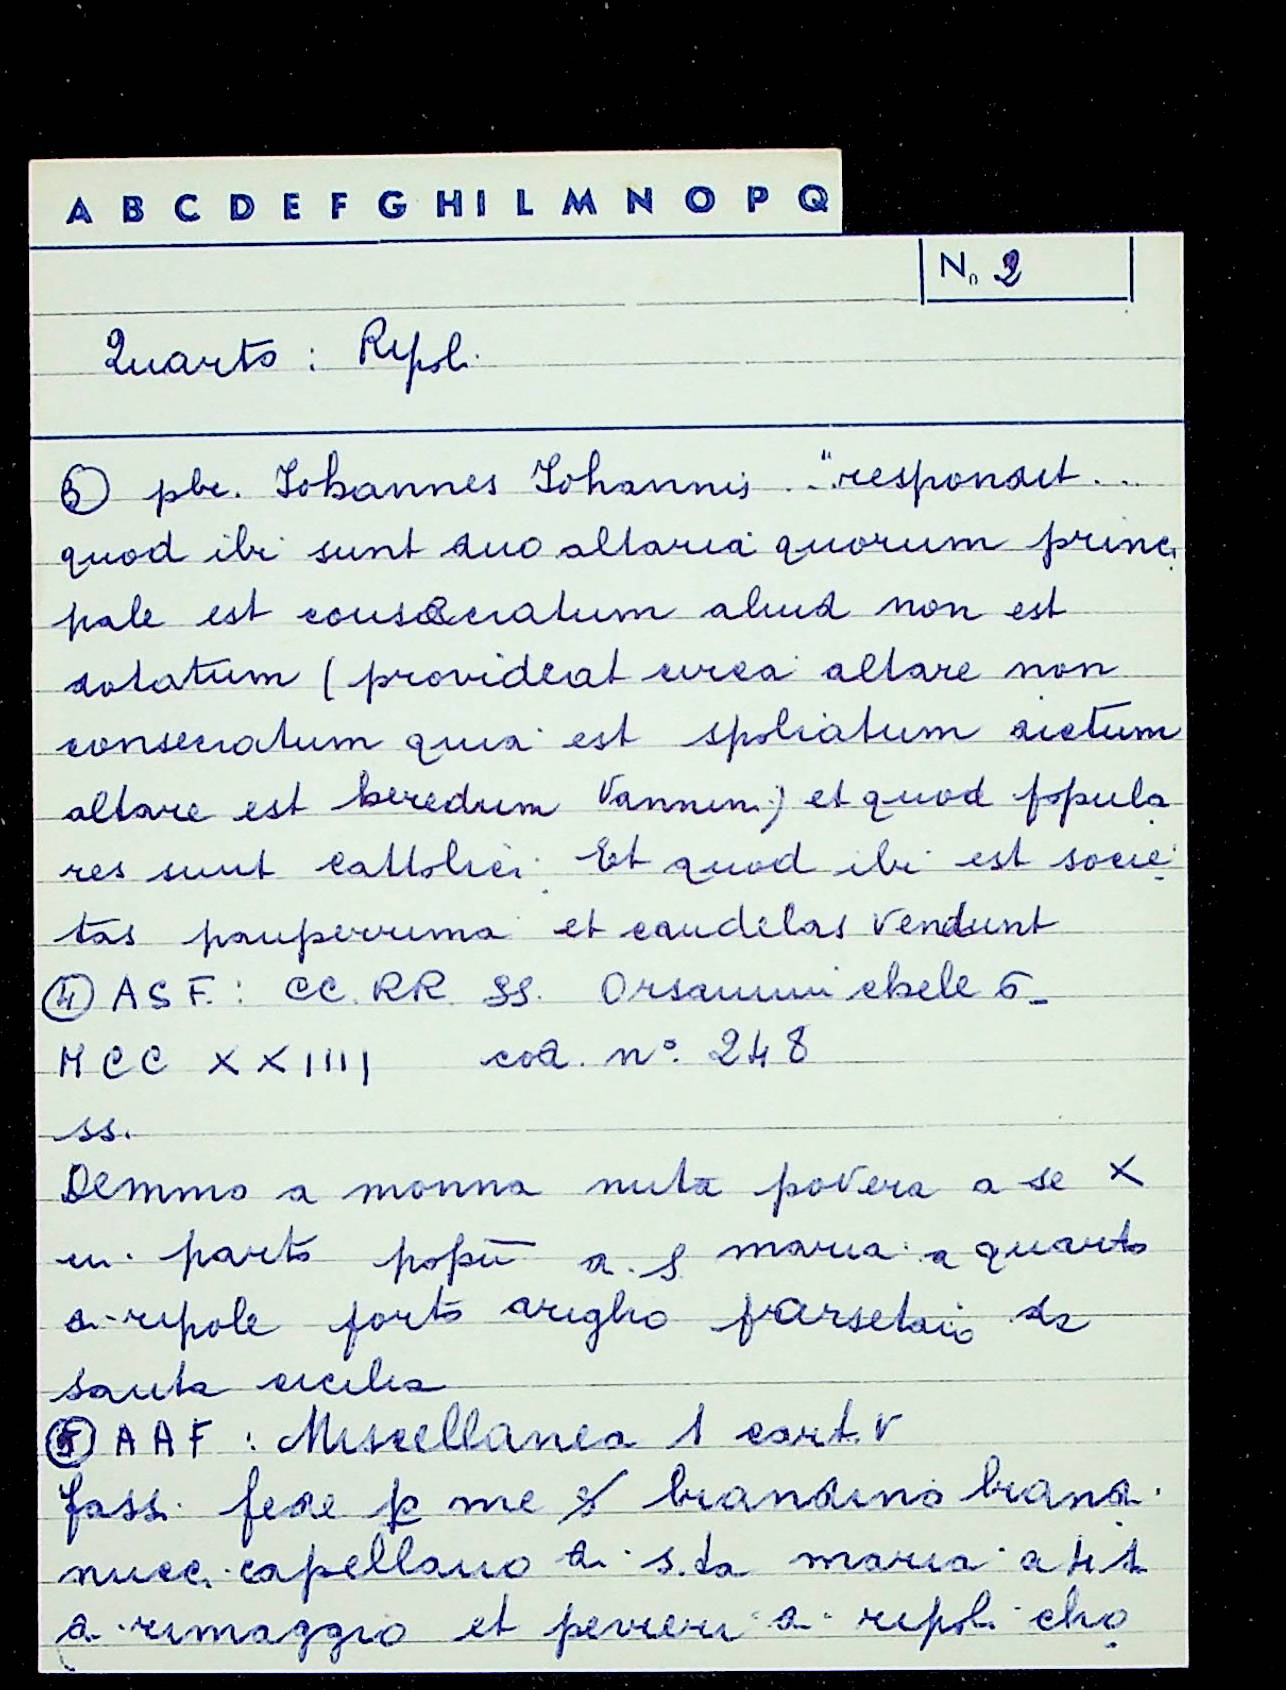 A B C D E F G H I L M N O P Q
N. 2
Quarto : Ripoli
pbr. Iohannes Iohannis ... "respondit ...
quod ibi sunt duo altaria quorum princi
pale est consecratum aliud non est
dotatum (provideat circa altare non
consecratum quia est spoliatum dictum
altare est heredum Vannini) et quod popula
res sunt cattolici. Et quod ibi est socie
tas pauperrima et candelas vendunt
④ A S F. : CC. RR. SS. Orsanmichele
M C C X X IIII cod. n°. 248
ss.
Demmo a monna nuta povera a se X
in parto a s maria a quarto
a ripole forto arigho farsetaio da
santa cicilia
⑤ A A F : Miscellanea 1 cart. V
fass. fede p me brandino brandi
nucci capellano di s.ta maria a
a rimaggio et pevieri a ripoli cho